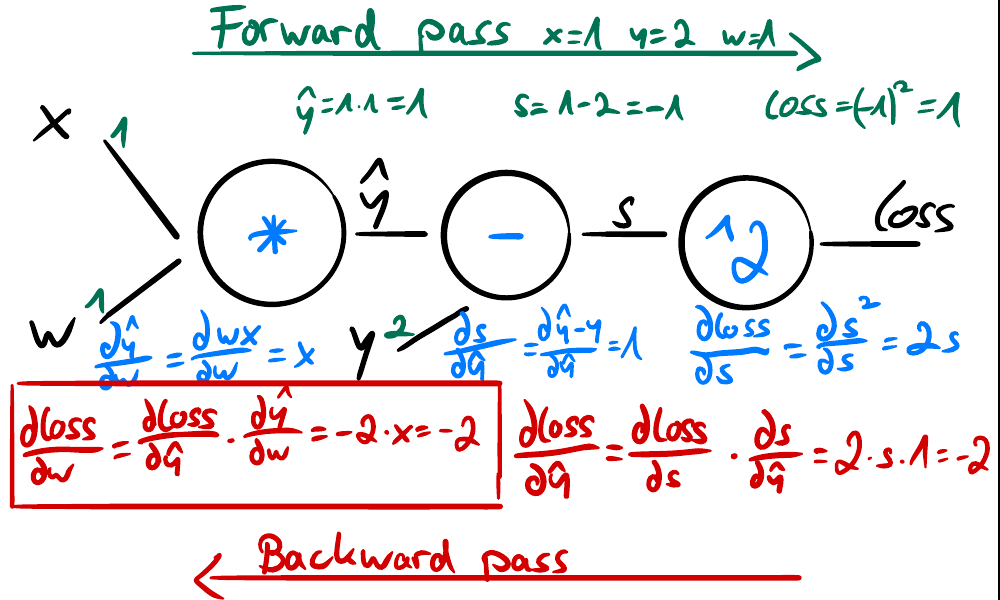 Forward pass x=1 y=2 w=1
ŷ=1·1=1 s=1-2=-1 loss=(-1)²=1
x 1
* ŷ - s ^2 loss
w 1
y 2
∂ŷ/∂w = ∂wx/∂w = x
∂s/∂ŷ = ∂ŷ-y/∂ŷ = 1
∂loss/∂s = ∂s²/∂s = 2s
∂loss/∂w = ∂loss/∂ŷ · ∂ŷ/∂w = -2·x = -2
∂loss/∂ŷ = ∂loss/∂s · ∂s/∂ŷ = 2·s·1 = -2
Backward pass